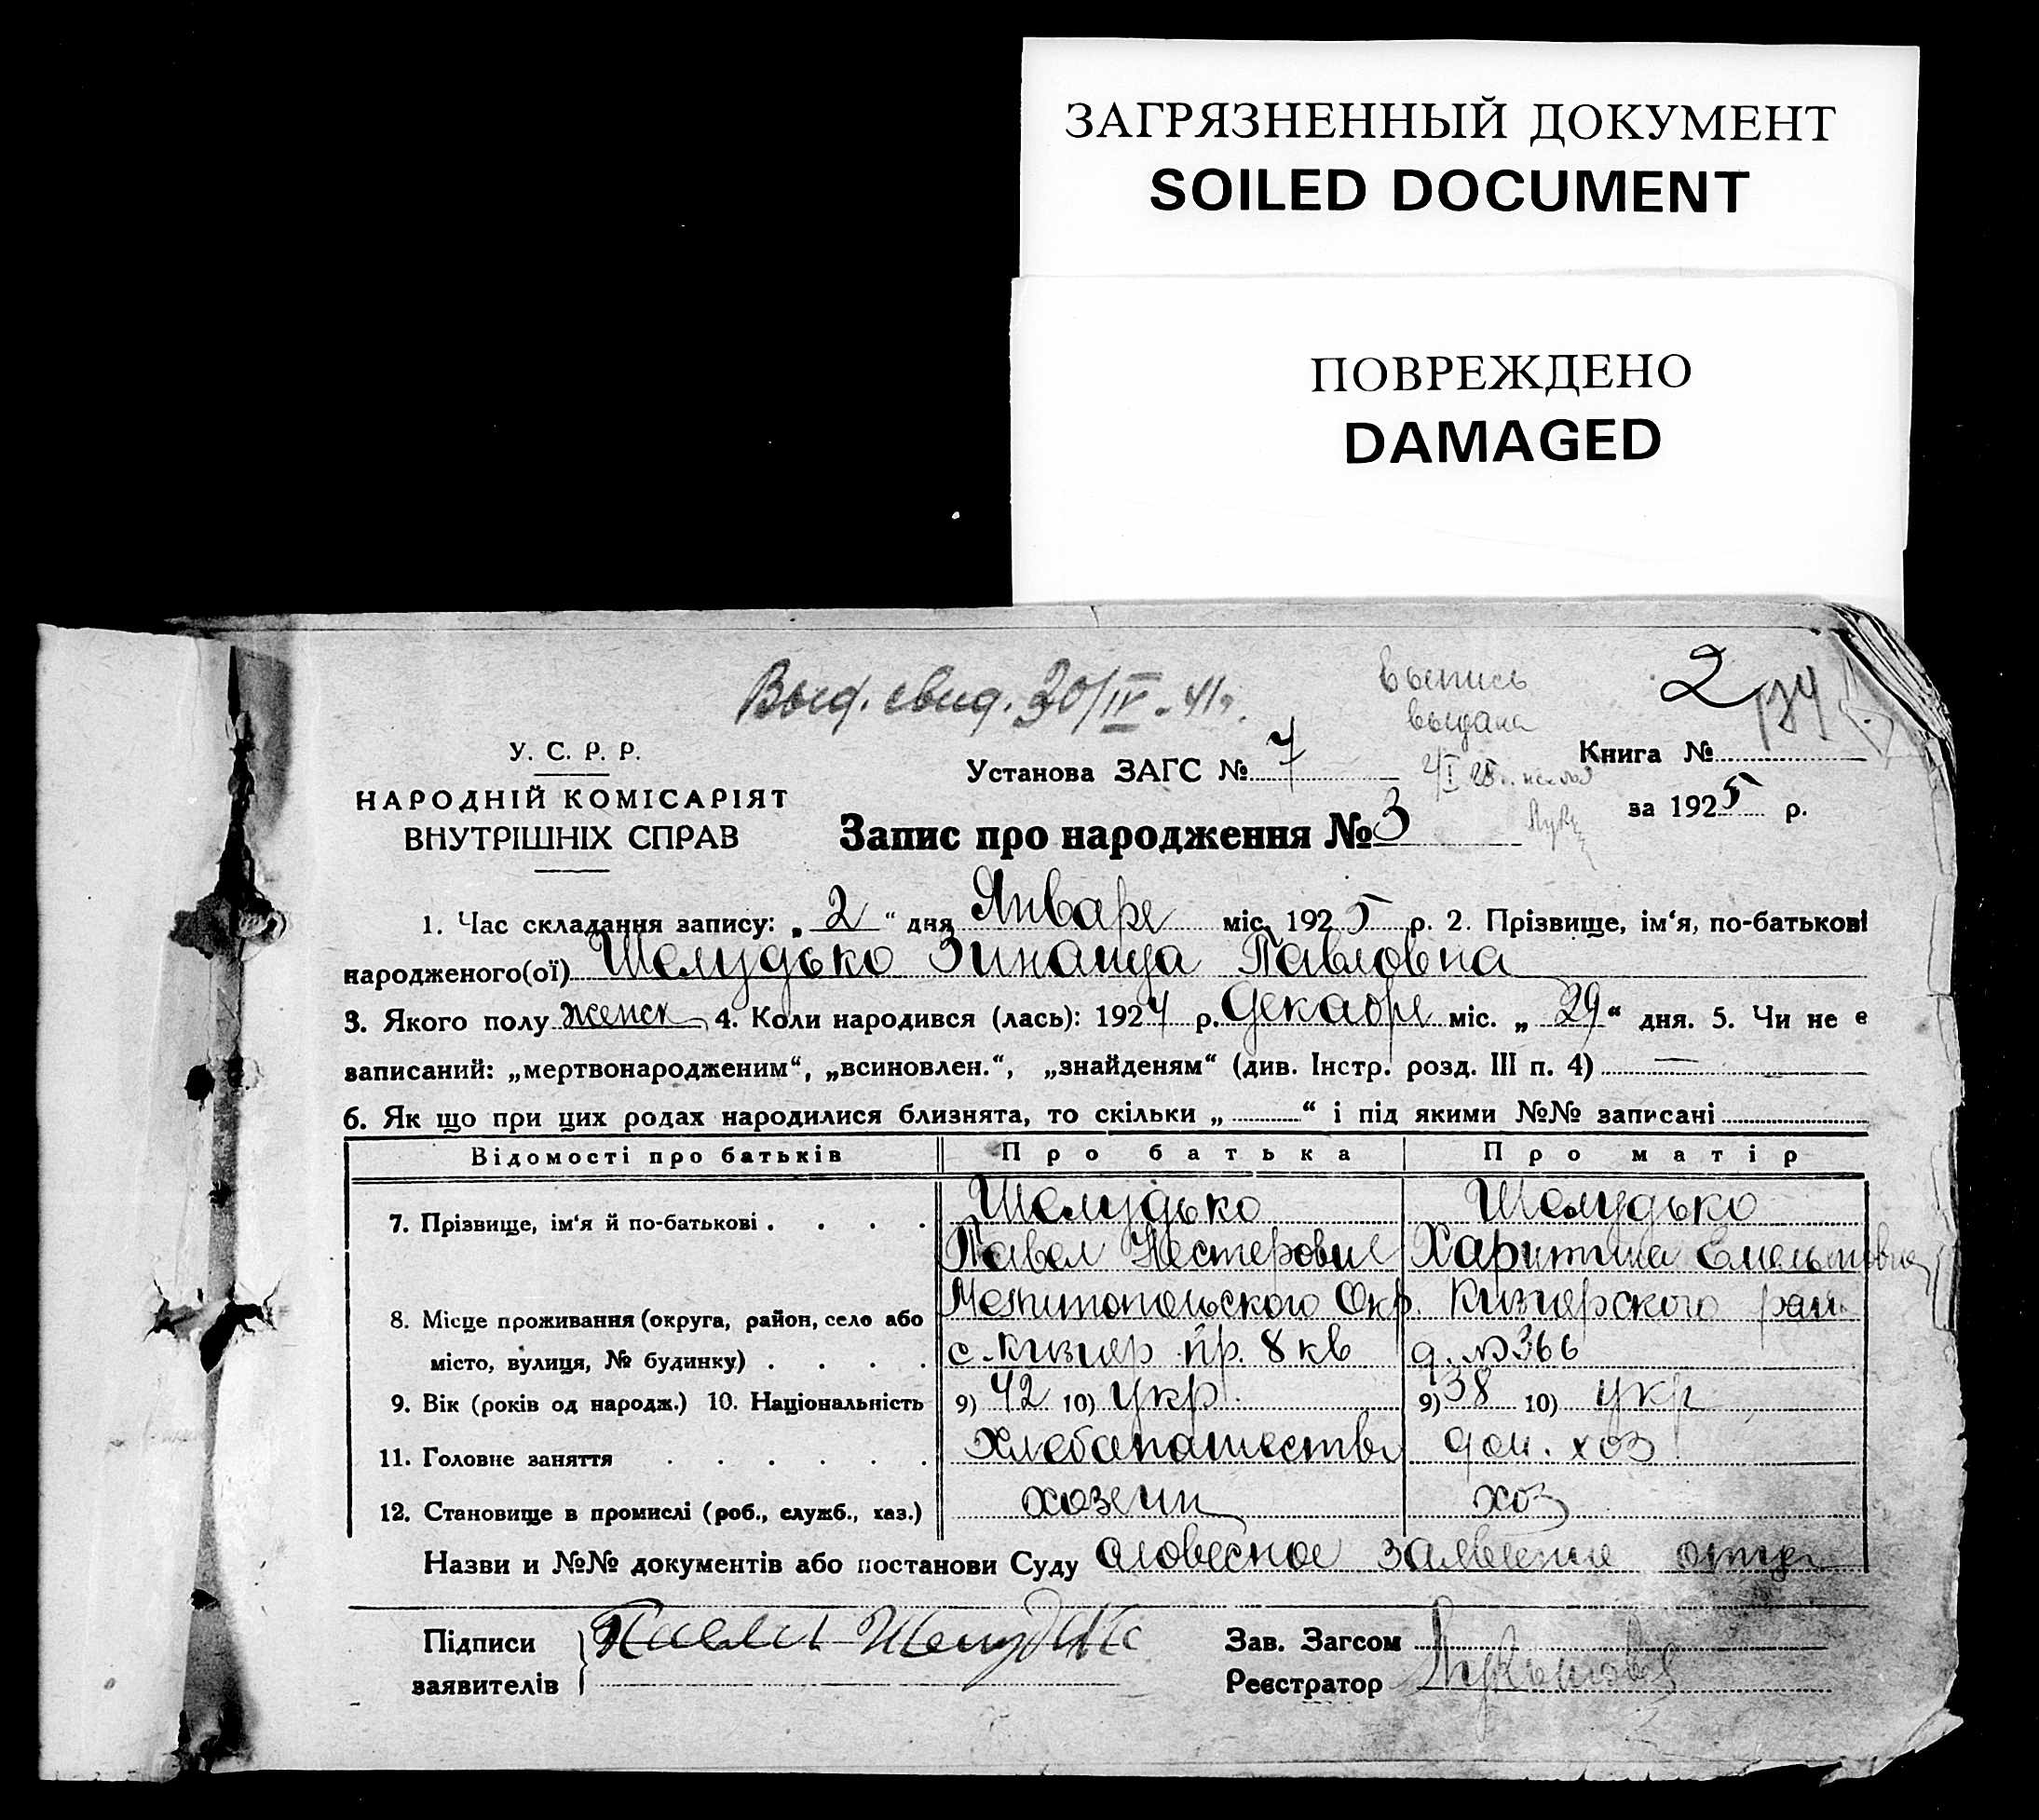 ЗАГРЯЗНЕННЫЙ ДОКУМЕНТ
SOILED DOCUMENT
ПОВРЕЖДЕНО
DAMAGED
Выд. свид. 30/IV - 41г.
выпись
выдана
2
134
У. С. Р. Р.
НАРОДНІЙ КОМІСАРІЯТ
ВНУТРІШНІХ СПРАВ
Установа ЗАГС № 7
Книга №
за 1925 р.
Запис про народження № 3
1. Час складання запису: „ 2 “ дня Январе міс. 1925 р. 2. Прізвище, ім‘я, по-батькові
народженого(ої) Шелудько Зинаида Павловна
3. Якого полу женск 4. Коли народився (лась): 1924 р. Декабре міс. „ 29 “ дня. 5. Чи не є
записаний: „мертвонародженим“, „всиновлен.“, „знайденям“ (див. Інстр. розд. III п. 4) —
6. Як що при цих родах народилися близнята, то скільки „ “ і під якими №№ записані
Відомості про батьків Про батька Про матір
7. Прізвище, ім‘я й по-батькові . . . . Шелудько Шелудько
Павел Нестерович Харитина Емельяновна
8. Місце проживання (округа, район, село або Мелитопольского Окр. Кизиярского рай.
місто, вулиця, № будинку) . . . . с. Кизияр пр. 8 кв д. № 366
9. Вік (років од народж.) 10. Національність 9) 42 10) Укр. 9) 38 10) укр
11. Головне заняття . . . . . . Хлебопашество дом. хоз
12. Становище в промислі (роб., служб., хаз.) хозеин хоз
Назви и №№ документів або постанови Суду словесное заявление отца
Підписи Павел Шелудько Зав. Загсом
заявителів Реєстратор